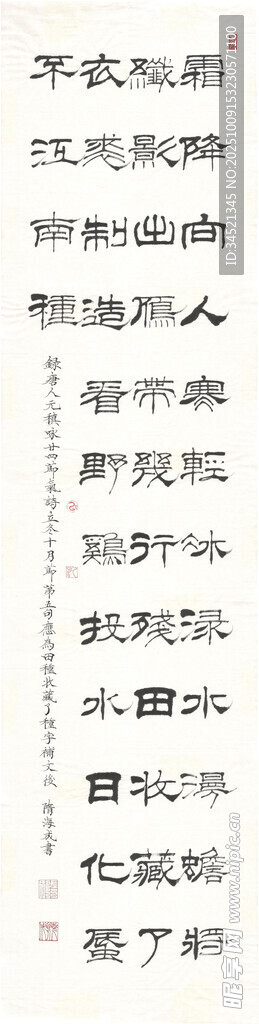 霜降向人寒輕冰渌水漫蟾將
纖影出鴈帶幾行殘田收藏了
衣裘制造看野鷄投水日化蜃
不江南種
錄唐人元稹咏廿四節氣詩立冬十月節第五句應為田種收藏了種字補文後 隋海成書
ID:34521345 NO:20251009153230571100
昵享网 www.nipic.cn